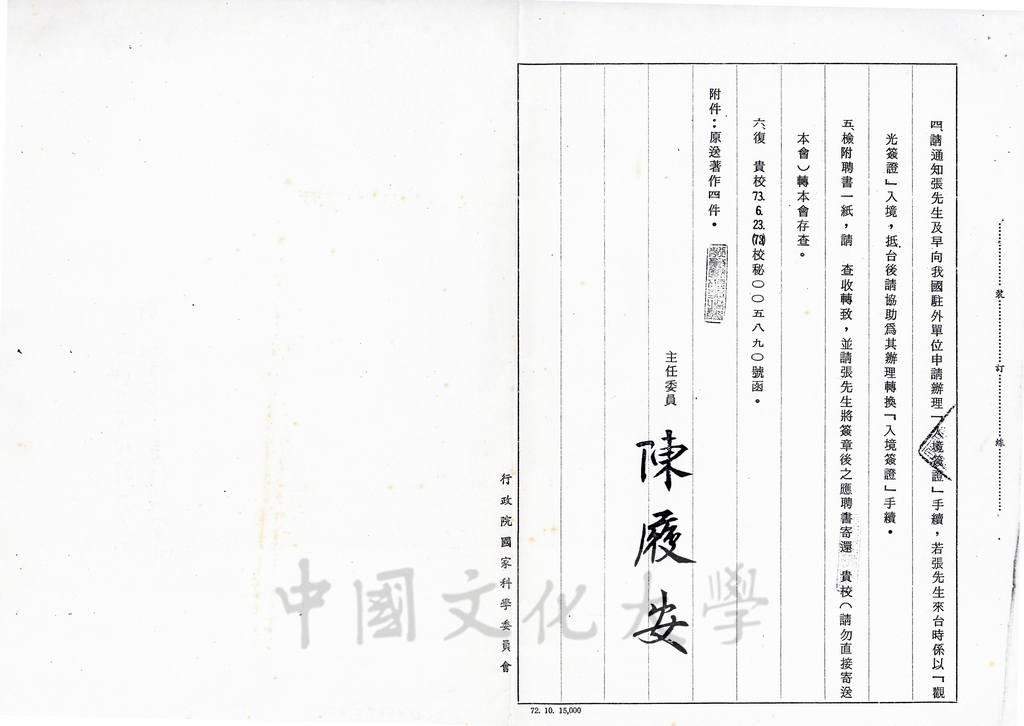 裝 訂 線
四、請通知張先生及早向我國駐外單位申請辦理「入境簽證」手續，若張先生來台時係以「觀
光簽證」入境，抵台後請協助為其辦理轉換「入境簽證」手續。
五、檢附聘書一紙，請　查收轉致，並請張先生將簽章後之應聘書寄還　貴校（請勿直接寄送
本會）轉本會存查。
六、復　貴校73.6.23.(73)校秘〇〇五八九〇號函。
附件：原送著作四件。
主任委員　陳履安
行政院國家科學委員會
72. 10. 15,000
中國文化大學